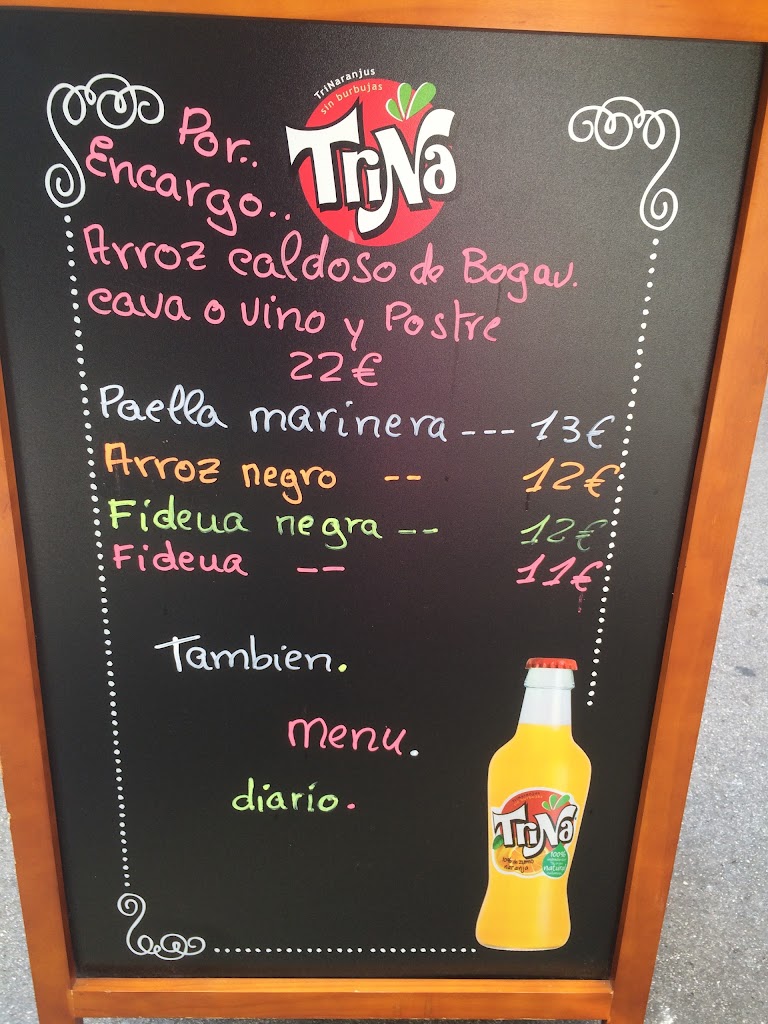 TriNaranjus
sin burbujas
TriNa
Por..
Encargo..
Arroz caldoso de Bogav.
cava o vino y Postre
22€
Paella marinera --- 13€
Arroz negro -- 12€
Fideua negra -- 12€
Fideua -- 11€
Tambien.
menu.
diario.
TriNa
10% de ZUMO
naranja
100%
natural